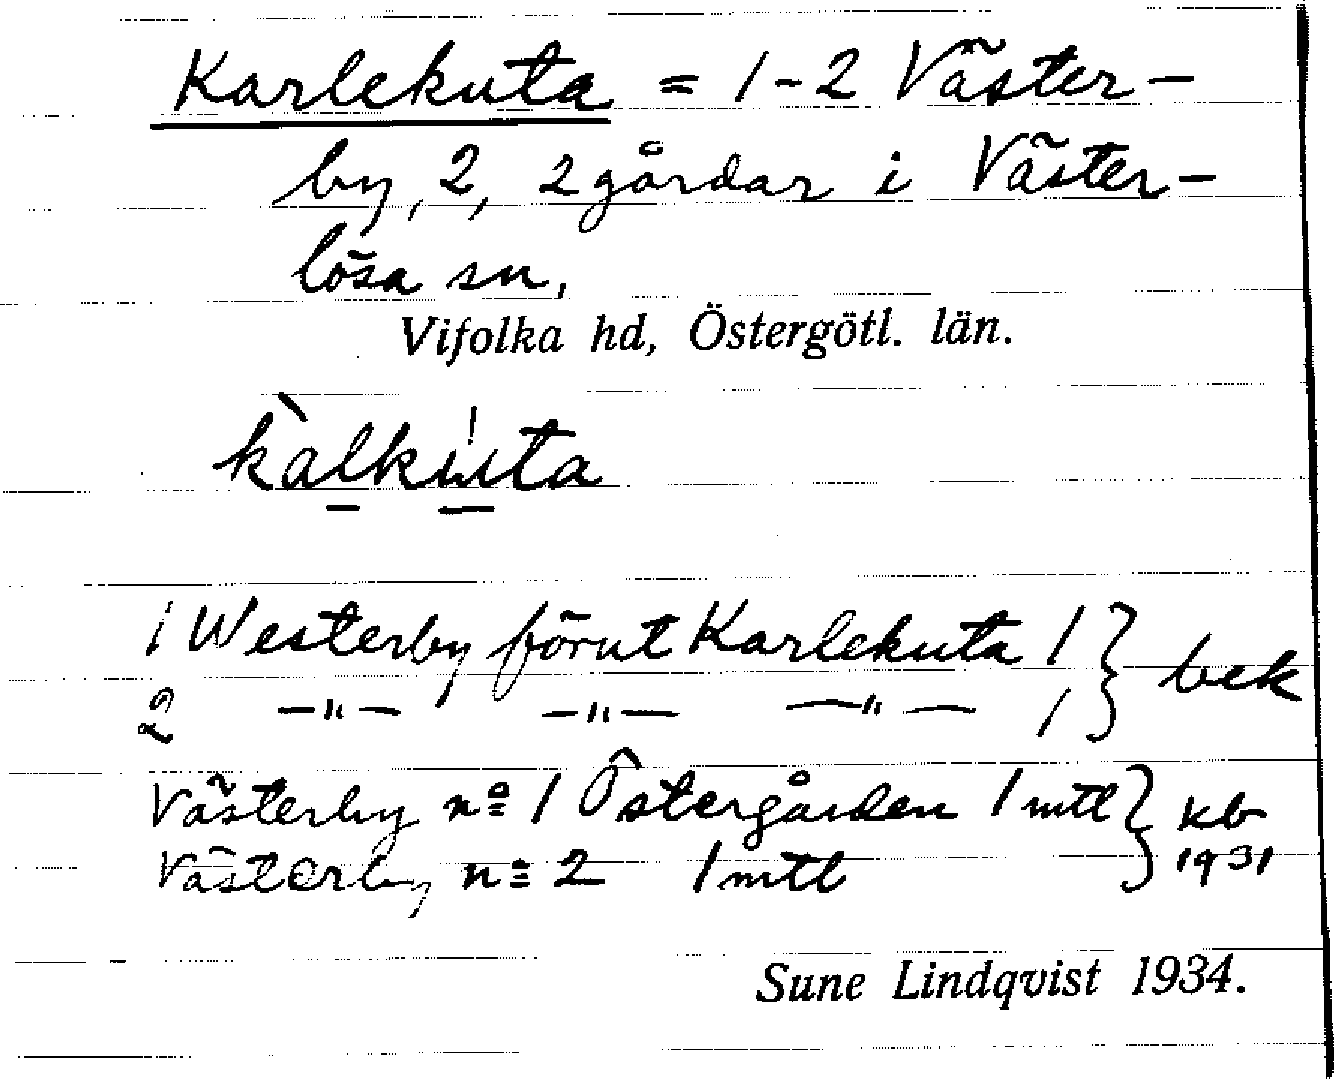 Karlekuta = 1-2 Väster-
by, 2, 2 gårdar i Väster-
lösa sn,
Vifolka hd, Östergötl. län.
kàlku̍ta
1 Westerby förut Karlekuta 1 } bek
2 —"— —"— —"— 1
Västerby nº 1 Östergården 1 mtl } kb
Västerby nº 2 1 mtl 1931
Sune Lindqvist 1934.